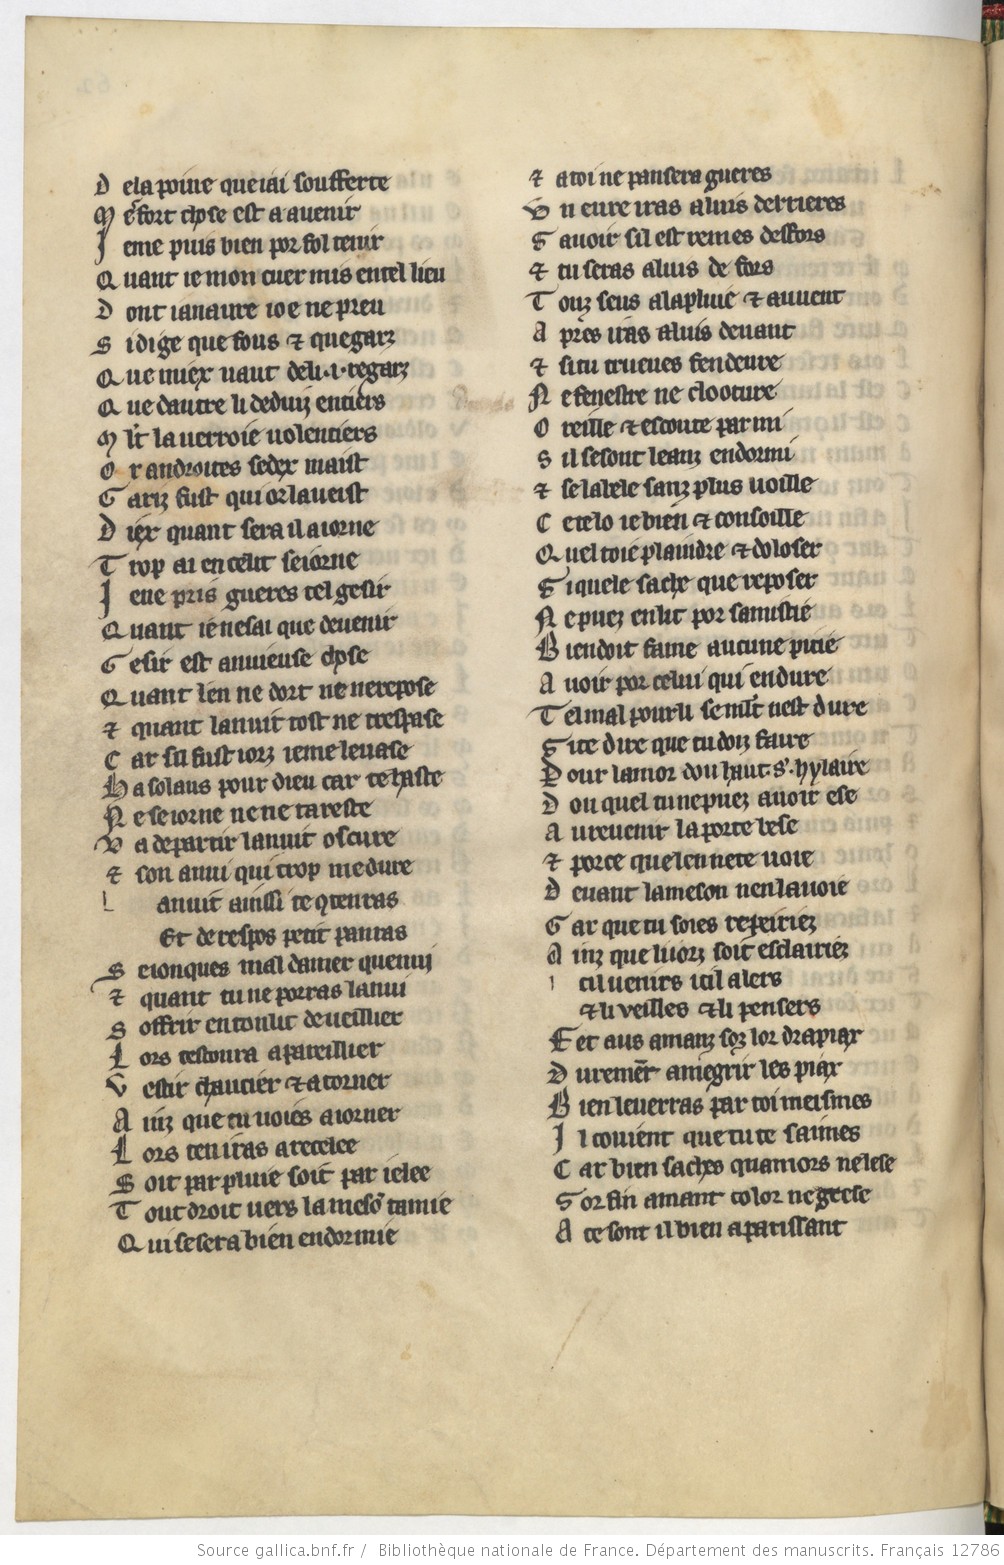 D ela poine que iai soufferte
M e fort chose est a auenir
J eme puis bien por fol tenir
Q uant ie mon cuer mis en tel lieu
D ont ianaure ioe ne preu
S i dige que fous ⁊ que garz
Q ue miex uaut deli .i. regarz
Q ue dautre li deduiz entiers
M lt la uerroie uolentiers
O r androites se dex maist
G ariz fust qui or laueist
D iex quant sera il aiorne
T rop ai en celit seiorne
J ene pris gueres tel gesir
Q uant ie nesai que deuenir
G esir est anuieuse chose
Q uant len ne dort ne ne repose
⁊ quant la nuit tost ne trespasse
C ar sil fust iorz ieme leuasse
H a solaus pour dieu car te haste
N e seiorne ne ne tareste
V a departir lanuit oscure
⁊ son anui qui trop me dure
L anuit ainssi te qtenras
Et de respos petit panras
S e ionques mal damer quenui
⁊ quant tu ne porras lanui
S offrir en ton lit de ueillier
L ors testoura apareillier
V estir chaucier ⁊ atorner
A inz que tu uoies aiorner
L ors ten iras a recelee
S oit par pluie soit par ielee
T out droit uers la meson tamie
Q ui se sera bien endormie
⁊ a toi ne pansera gueres
V n eure iras aluis derrieres
S auoir sil est remes desfors
⁊ tu seras aluis de fors
T ouz seus a la pluie ⁊ au uent
A pres iras aluis deuant
⁊ si tu trueues fendeure
N e fenestre ne clooture
O reille ⁊ escoute par mi
S il se sont leanz endormi
⁊ se la bele sanz plus uoille
C e te lo ie bien ⁊ consoille
Q uel toie plaindre ⁊ doloser
S i quele sache que reposer
N e puez en lit por samistie
B ien doit fame aucune pitie
A uoir por celui qui endure
T el mal pour li se mlt nest dure
S i te dire que tu doiz faire
P our lamor dou haut .s'. hylaire
D ou quel tu ne puez auoir ese
A u reuenir la porte bese
⁊ porce que len ne te uoie
D euant la meson nen la uoie
G ar que tu soies repeiriez
A inz que li iorz soit esclairiez
I cil uenirs icil alers
⁊ li veilles ⁊ li pensers
F et aus amanz soz lor drapiax
D uremēt amegrir les piax
B ien le uerras par toi meismes
J l couient que tu te saimes
C ar bien saches quamors ne lese
S or fin amant color ne gresse
A ce sont il bien aparissant